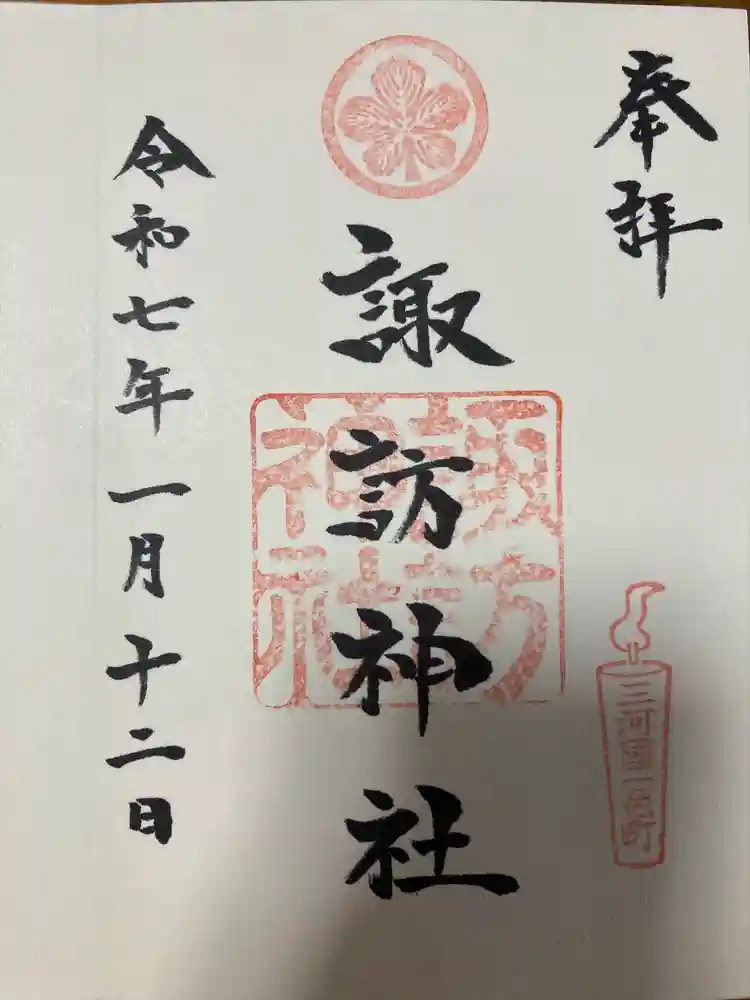 奉拝
三河國一色町
諏訪神社
諏訪
神社
令和七年一月十二日